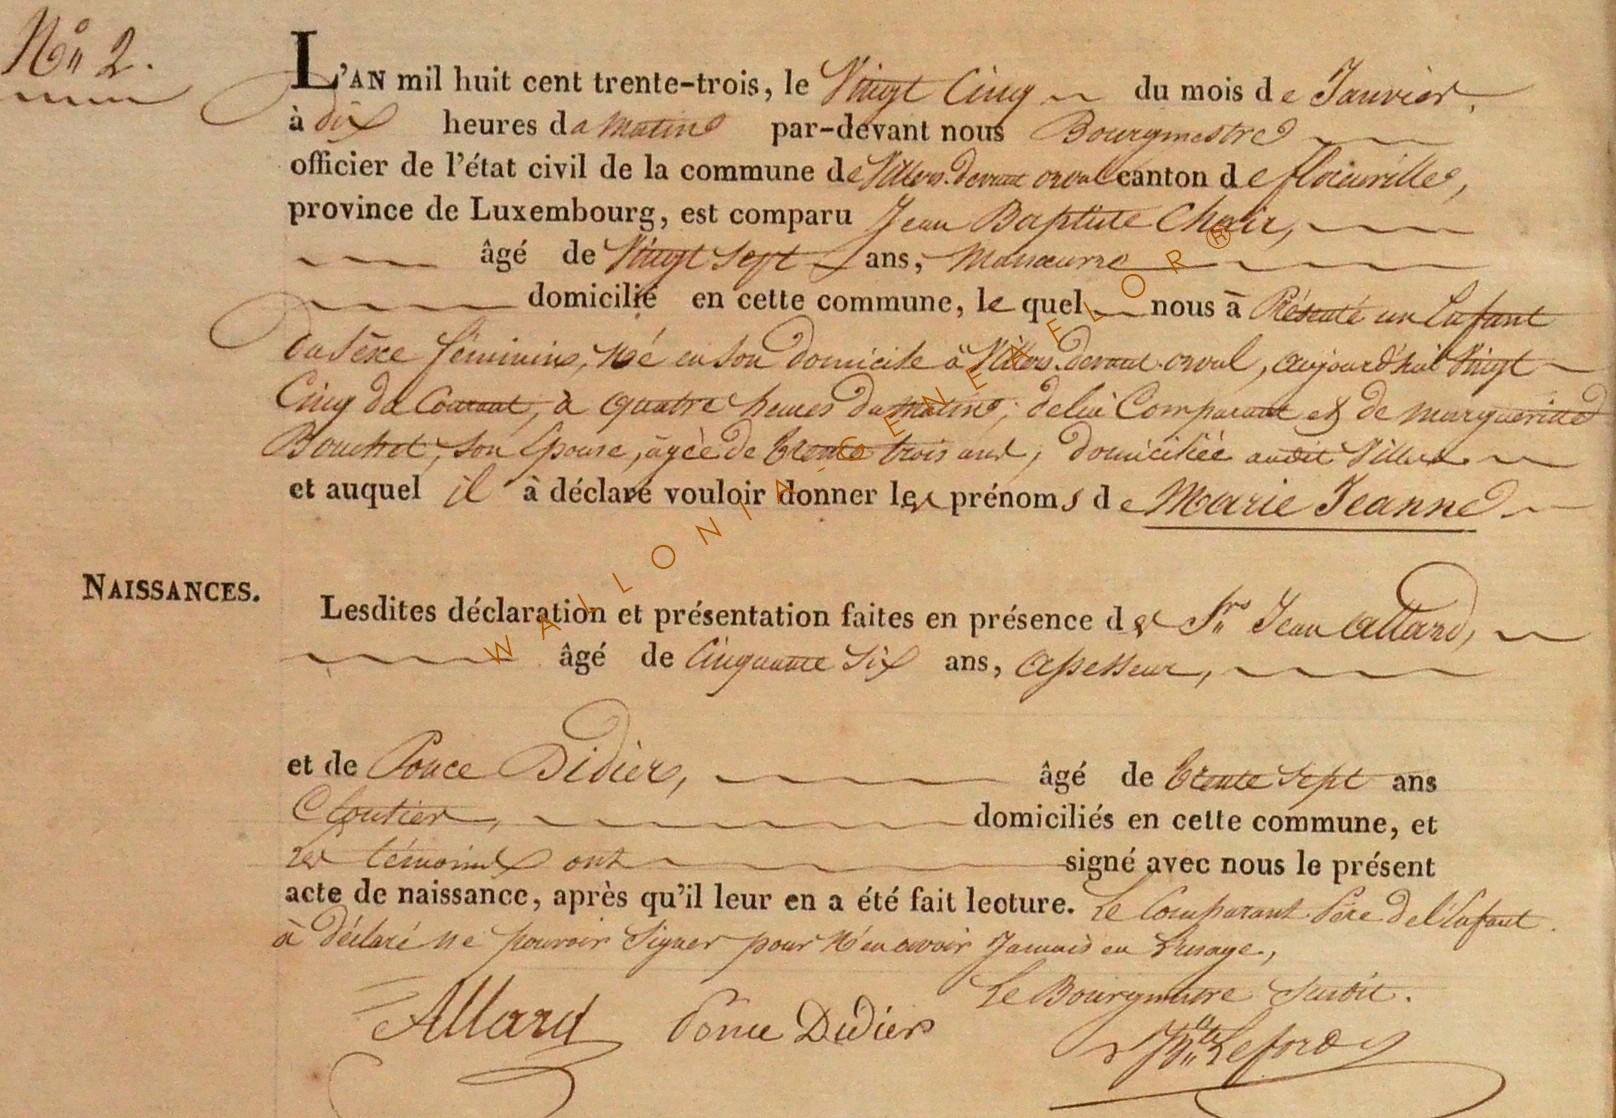 N° 2.
L'AN mil huit cent trente-trois, le Vingt Cinq du mois de Janvier,
à dix heures du matin par-devant nous Bourgmestre
officier de l'état civil de la commune de Villers devant orval canton de florenville,
province de Luxembourg, est comparu Jean Baptiste
âgé de Vingt Sept ans, Manœuvre
domicilié en cette commune, le quel nous à Présenté un Enfant
du Sexe féminin, Né en son domicile à Villers devant orval, aujourd'hui Vingt
Cinq du Courant, à quatre heures du matin, de lui Comparant et de margueritte
Bouchet, son Epouse, agée de trente trois ans, domiciliée audit Villers
et auquel il à déclaré vouloir donner les prénoms de Marie Jeanne
NAISSANCES.
Lesdites déclaration et présentation faites en présence des Srs Jean allard,
âgé de Cinquante Six ans, assesseur,
et de Ponce Didier, âgé de trente Sept ans
Cloutier, domiciliés en cette commune, et
les témoins ont signé avec nous le présent
acte de naissance, après qu'il leur en a été fait lecture. Le Comparant Père de l'Enfant
à déclaré ne pouvoir Signer pour N'en avoir Jamais eu l'usage,
Le Bourgmestre Susdit.
Allard Ponce Didier
WALLONIA GENENELOR ®